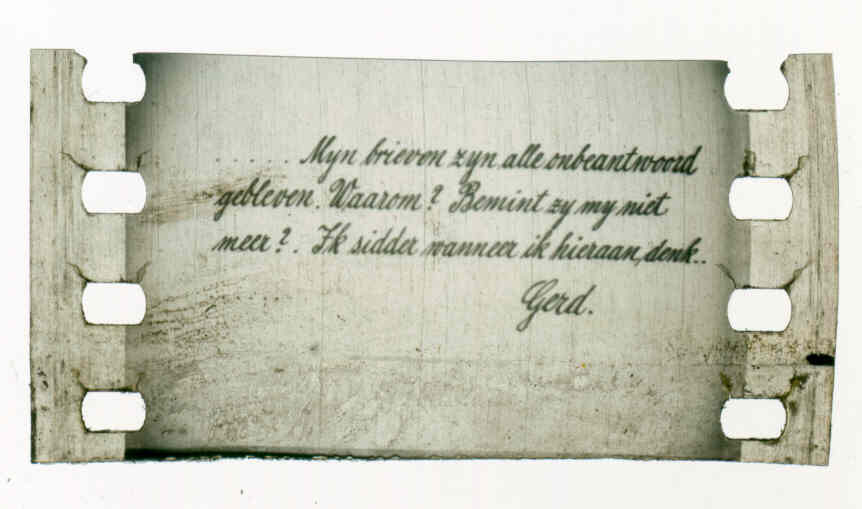 ..... Myn brieven zyn alle onbeantwoord
gebleven. Waarom? Bemint zy my niet
meer?. Ik sidder wanneer ik hieraan denk..
Gerd.